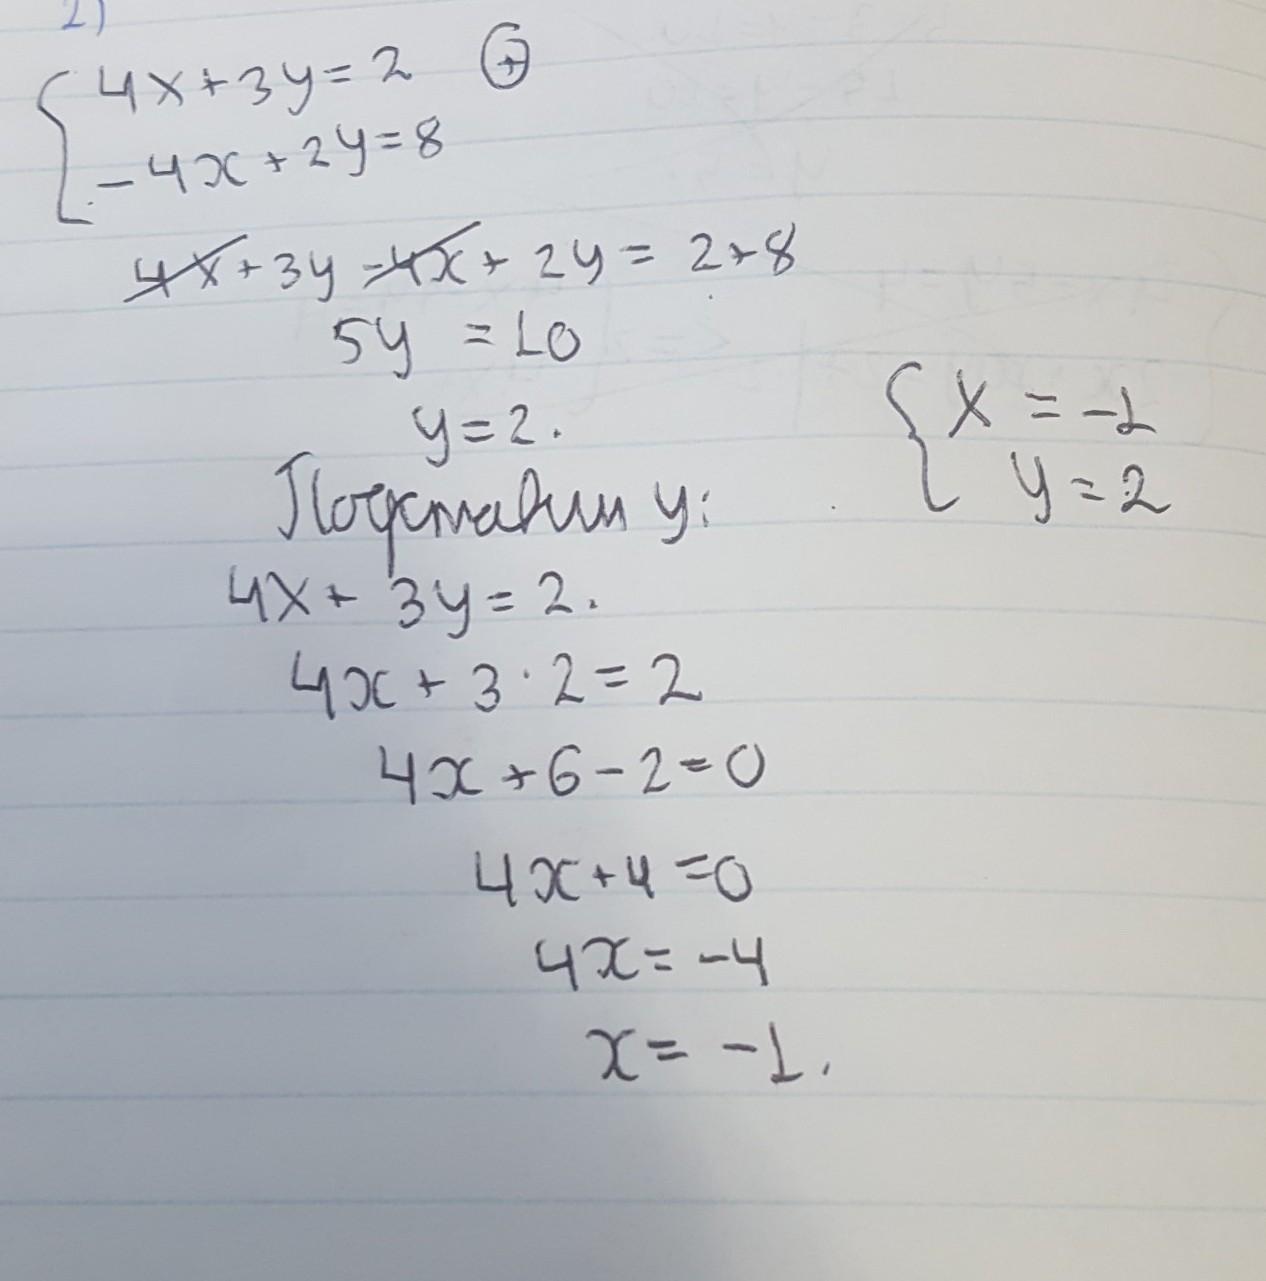 2)
4x+3y=2 ⊕
-4x+2y=8
4x+3y-4x+2y=2+8
5y=10
y=2.
Подставим y:
4x+3y=2.
4x+3·2=2
4x+6-2=0
4x+4=0
4x=-4
x=-1.
x=-1
y=2